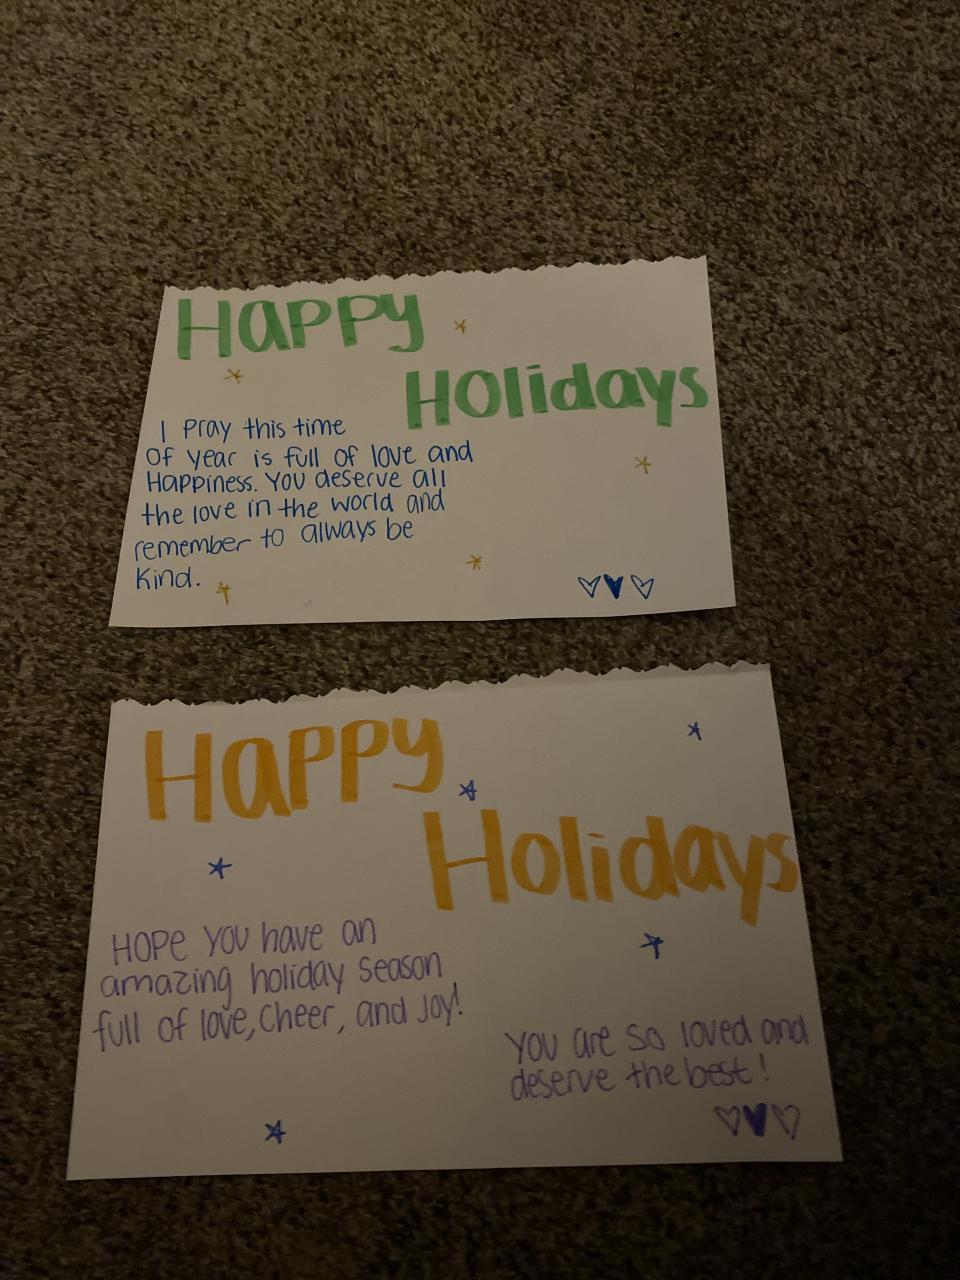 Happy
Holidays
I pray this time
of year is full of love and
Happiness. You deserve all
the love in the world and
remember to always be
kind.
Happy
Holidays
HOPE YOU have an
amazing holiday season
full of love, cheer, and Joy!
YOU are so loved and
deserve the best!